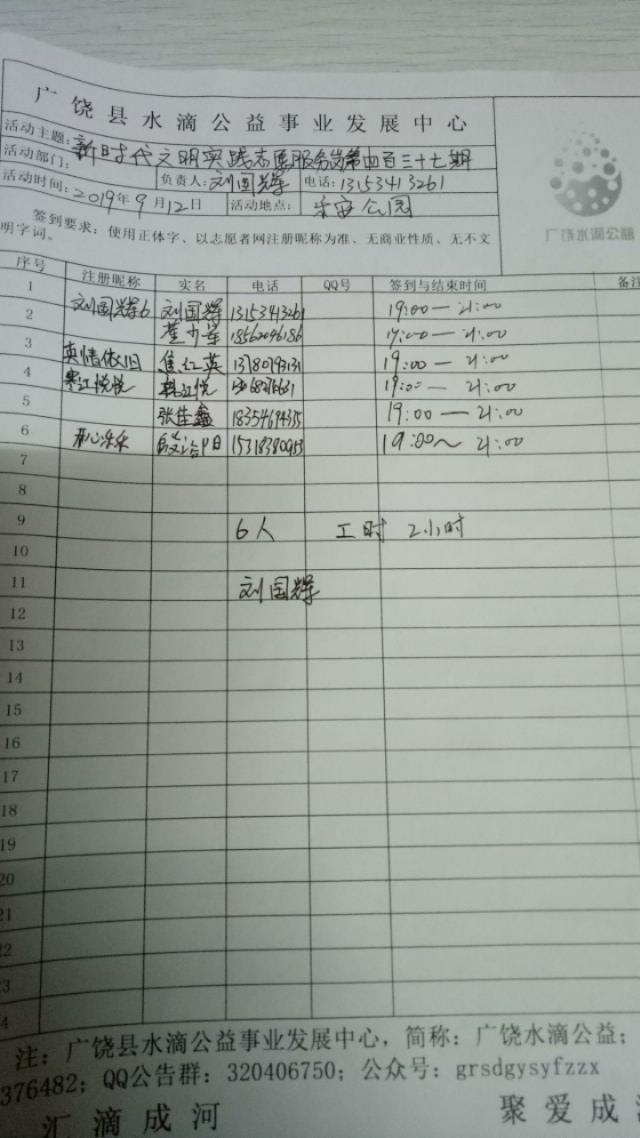 广饶县水滴公益事业发展中心
活动主题: 新时代文明实践志愿服务岗第四百三十七期
活动部门: 负责人: 刘国辉 电话: 13153413261
活动时间: 2019年9月12日 活动地点: 乐安公园
签到要求: 使用正体字、以志愿者网注册昵称为准、无商业性质、无不文
明字词。
序号 注册昵称 实名 电话 QQ号 签到与结束时间 备注
1 刘国辉6 刘国辉 13153413261 19:00—21:00
2 18562046186 19:00—21:00
3 真情依旧 焦红英 19:00—21:00
4 寒江悦悦 韩江悦 19:00—21:00
5 张佳鑫 19:00—21:00
6 开心乐乐 19:00~21:00
7
8
9 6人 工时 2小时
10
11 刘国辉
12
13
14
15
16
17
18
19
20
21
22
23
4
注: 广饶县水滴公益事业发展中心, 简称: 广饶水滴公益;
376482; QQ公告群: 320406750; 公众号: grsdgysyfzzx
汇滴成河 聚爱成